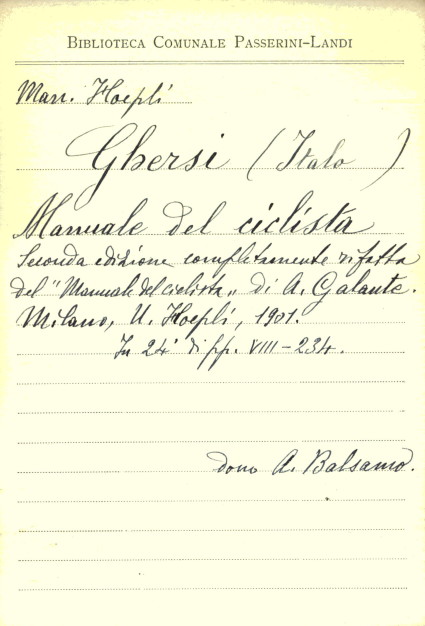 BIBLIOTECA COMUNALE PASSERINI-LANDI
Man. Hoepli
Ghersi (Italo)
Manuale del ciclista
Seconda edizione completamente rifatta
del "Manuale del ciclista" di A. Galante.
Milano, U. Hoepli, 1901.
In 24° di pp. VIII-234.
dono A. Balsamo.